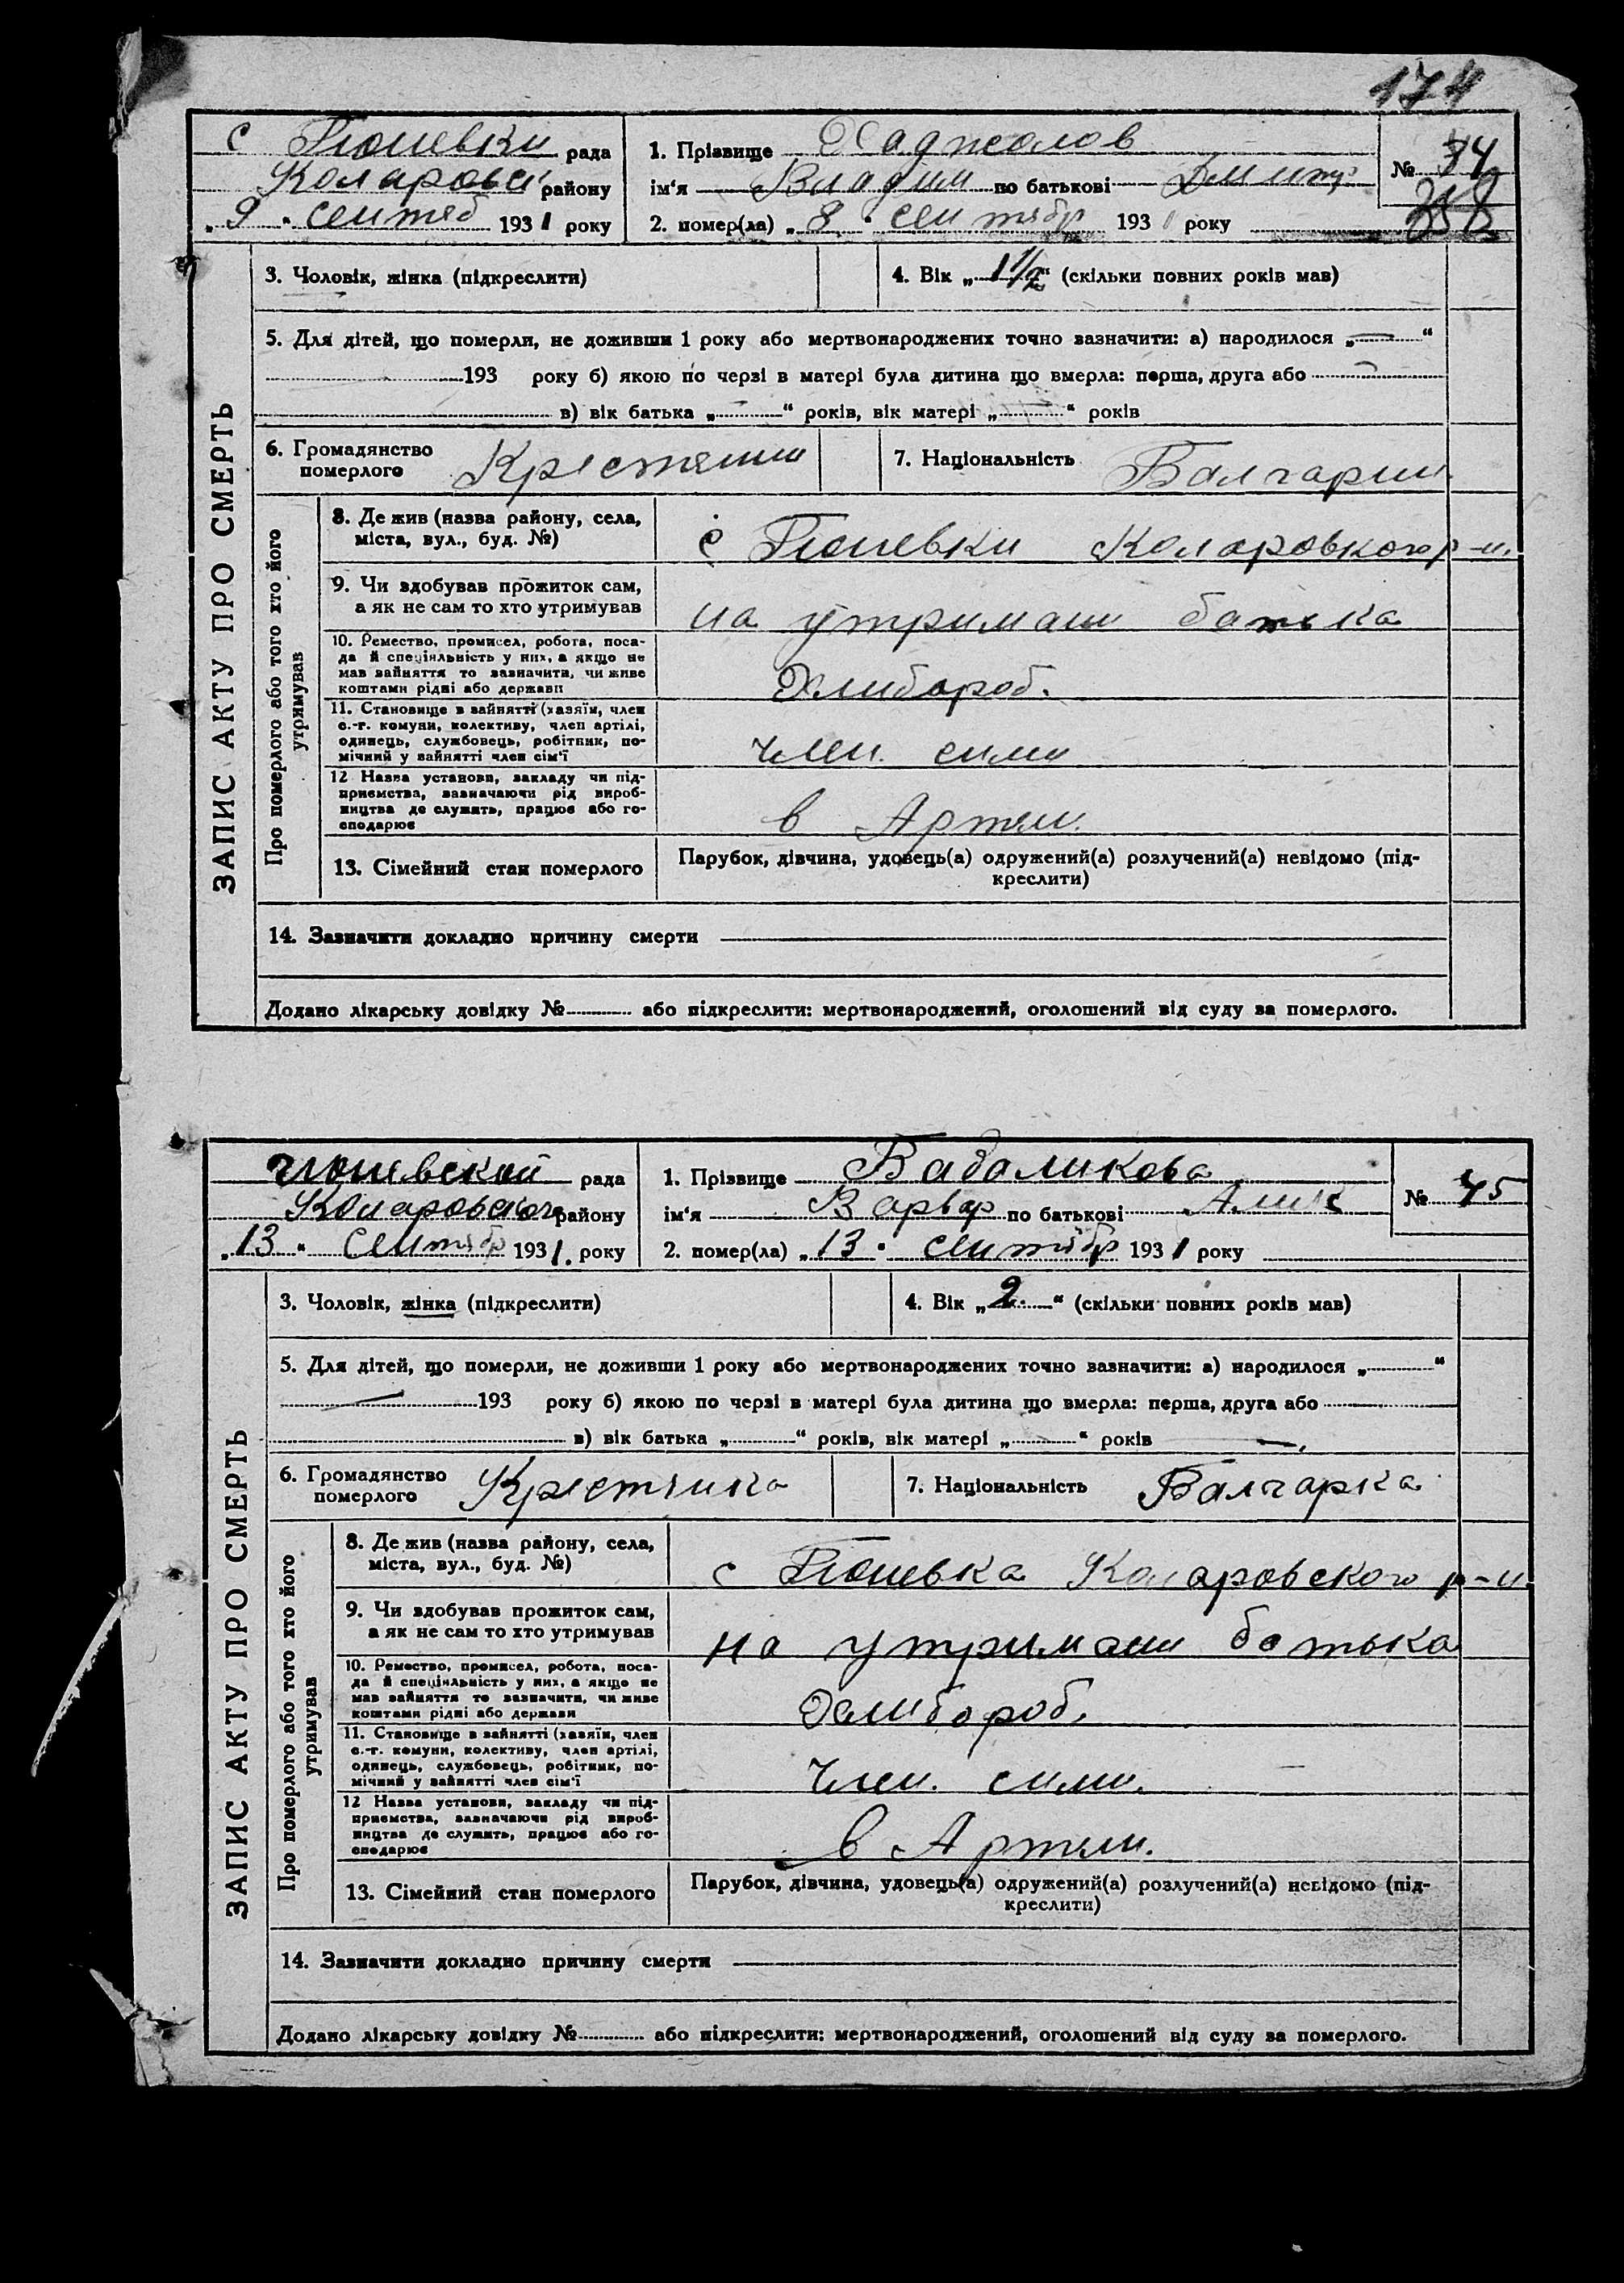 174
с Гюневки рада
Коларовск району
„9“ сентяб 1931 року
1. Прізвище Хаджолов
ім'я Владим по батькові Дмитр
2. помер(ла) „8“ сентябр 1931 року
№ 74
358
ЗАПИС АКТУ ПРО СМЕРТЬ
3. Чоловік, жінка (підкреслити)
4. Вік „1 1/2“ (скільки повних років мав)
5. Для дітей, що померли, не доживши 1 року або мертвонароджених точно зазначити: а) народилося „—“
193 року б) якою по черзі в матері була дитина що вмерла: перша, друга або
в) вік батька „—“ років, вік матері „—“ років
6. Громадянство
померлого
Крестянин
7. Національність Балгарин
Про померлого або того хто його
утримував
8. Де жив (назва району, села,
міста, вул., буд. №)
с Гюневки Коларовского р-н.
9. Чи здобував прожиток сам,
а як не сам то хто утримував
на утримани батька
10. Ремество, промисел, робота, поса-
да й спеціяльність у них, а якщо не
мав зайняття то зазначити, чи живе
коштами рідні або держави
Хлибороб.
11. Становище в зайнятті (хазяїн, член
с.-г. комуни, колективу, член артілі,
одинець, службовець, робітник, по-
мічний у зайнятті член сім'ї
член. сими
12 Назва установи, закладу чи під-
приємства, зазначаючи рід вироб-
ництва де служить, працює або го-
сподарює
в Артели.
13. Сімейний стан померлого
Парубок, дівчина, удовець(а) одружений(а) розлучений(а) невідомо (під-
креслити)
14. Зазначити докладно причину смерти
Додано лікарську довідку № або підкреслити: мертвонароджений, оголошений від суду за померлого.
Гюневской рада
Коларовского району
„13“ сентябр 1931. року
1. Прізвище Бадаликова
ім'я Варвар по батькові
2. помер(ла) „13“ сентябр 1931 року
№ 75
ЗАПИС АКТУ ПРО СМЕРТЬ
3. Чоловік, жінка (підкреслити)
4. Вік „2“ (скільки повних років мав)
5. Для дітей, що померли, не доживши 1 року або мертвонароджених точно зазначити: а) народилося „“
193 року б) якою по черзі в матері була дитина що вмерла: перша, друга або
в) вік батька „“ років, вік матері „“ років
6. Громадянство
померлого
Крестянка
7. Національність Балгарка
Про померлого або того хто його
утримував
8. Де жив (назва району, села,
міста, вул., буд. №)
с Гюневка Коларовского р-н
9. Чи здобував прожиток сам,
а як не сам то хто утримував
на утримани батька
10. Ремество, промисел, робота, поса-
да й спеціяльність у них, а якщо не
мав зайняття то зазначити, чи живе
коштами рідні або держави
Хлибороб.
11. Становище в зайнятті (хазяїн, член
с.-г. комуни, колективу, член артілі,
одинець, службовець, робітник, по-
мічний у зайнятті член сім'ї
Член. сими.
12 Назва установи, закладу чи під-
приємства, зазначаючи рід вироб-
ництва де служить, працює або го-
сподарює
в Артели.
13. Сімейний стан померлого
Парубок, дівчина, удовець(а) одружений(а) розлучений(а) невідомо (під-
креслити)
14. Зазначити докладно причину смерти
Додано лікарську довідку № або підкреслити: мертвонароджений, оголошений від суду за померлого.